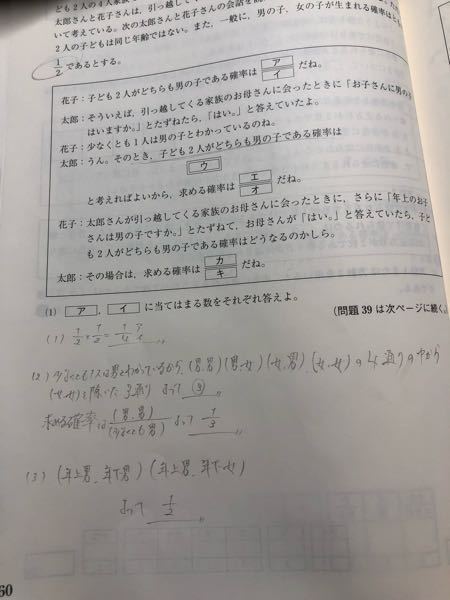 太郎さんと花子さんは、引っ越して
いて考えている。次の太郎さんと花子さんの会話を
2人の子どもは同じ年齢ではない。また、一般に、男の子、女の子が生まれる確率は
1/2 であるとする。
花子：子ども2人がどちらも男の子である確率は ア/イ だね。
太郎：そういえば、引っ越してくる家族のお母さんに会ったときに「お子さんに男の
はいますか。」とたずねたら、「はい。」と答えていたよ。
花子：少なくとも1人は男の子とわかっているのね。
太郎：うん。そのとき、子ども2人がどちらも男の子である確率は
ウ
と考えればよいから、求める確率は エ/オ だね。
花子：太郎さんが引っ越してくる家族のお母さんに会ったときに、さらに「年上のお子
さんは男の子ですか。」とたずねて、お母さんが「はい。」と答えていたら、子ど
も2人がどちらも男の子である確率はどうなるのかしら。
太郎：その場合は、求める確率は カ/キ だね。
(1) ア，イ に当てはまる数をそれぞれ答えよ。
(問題 39 は次ページに続く。
(1) 1/2 × 1/2 = 1/4 ア イ
(2) 少なくとも1人は男とわかっているから、(男,男)(男,女)(女,男)(女,女)の4通りの中から
(女,女)を除いた3通り よって ③
求める確率は (男,男)/(少なくとも男) よって 1/3
(3) (年上男、年下男) (年上男、年下女)
よって 1/2
60